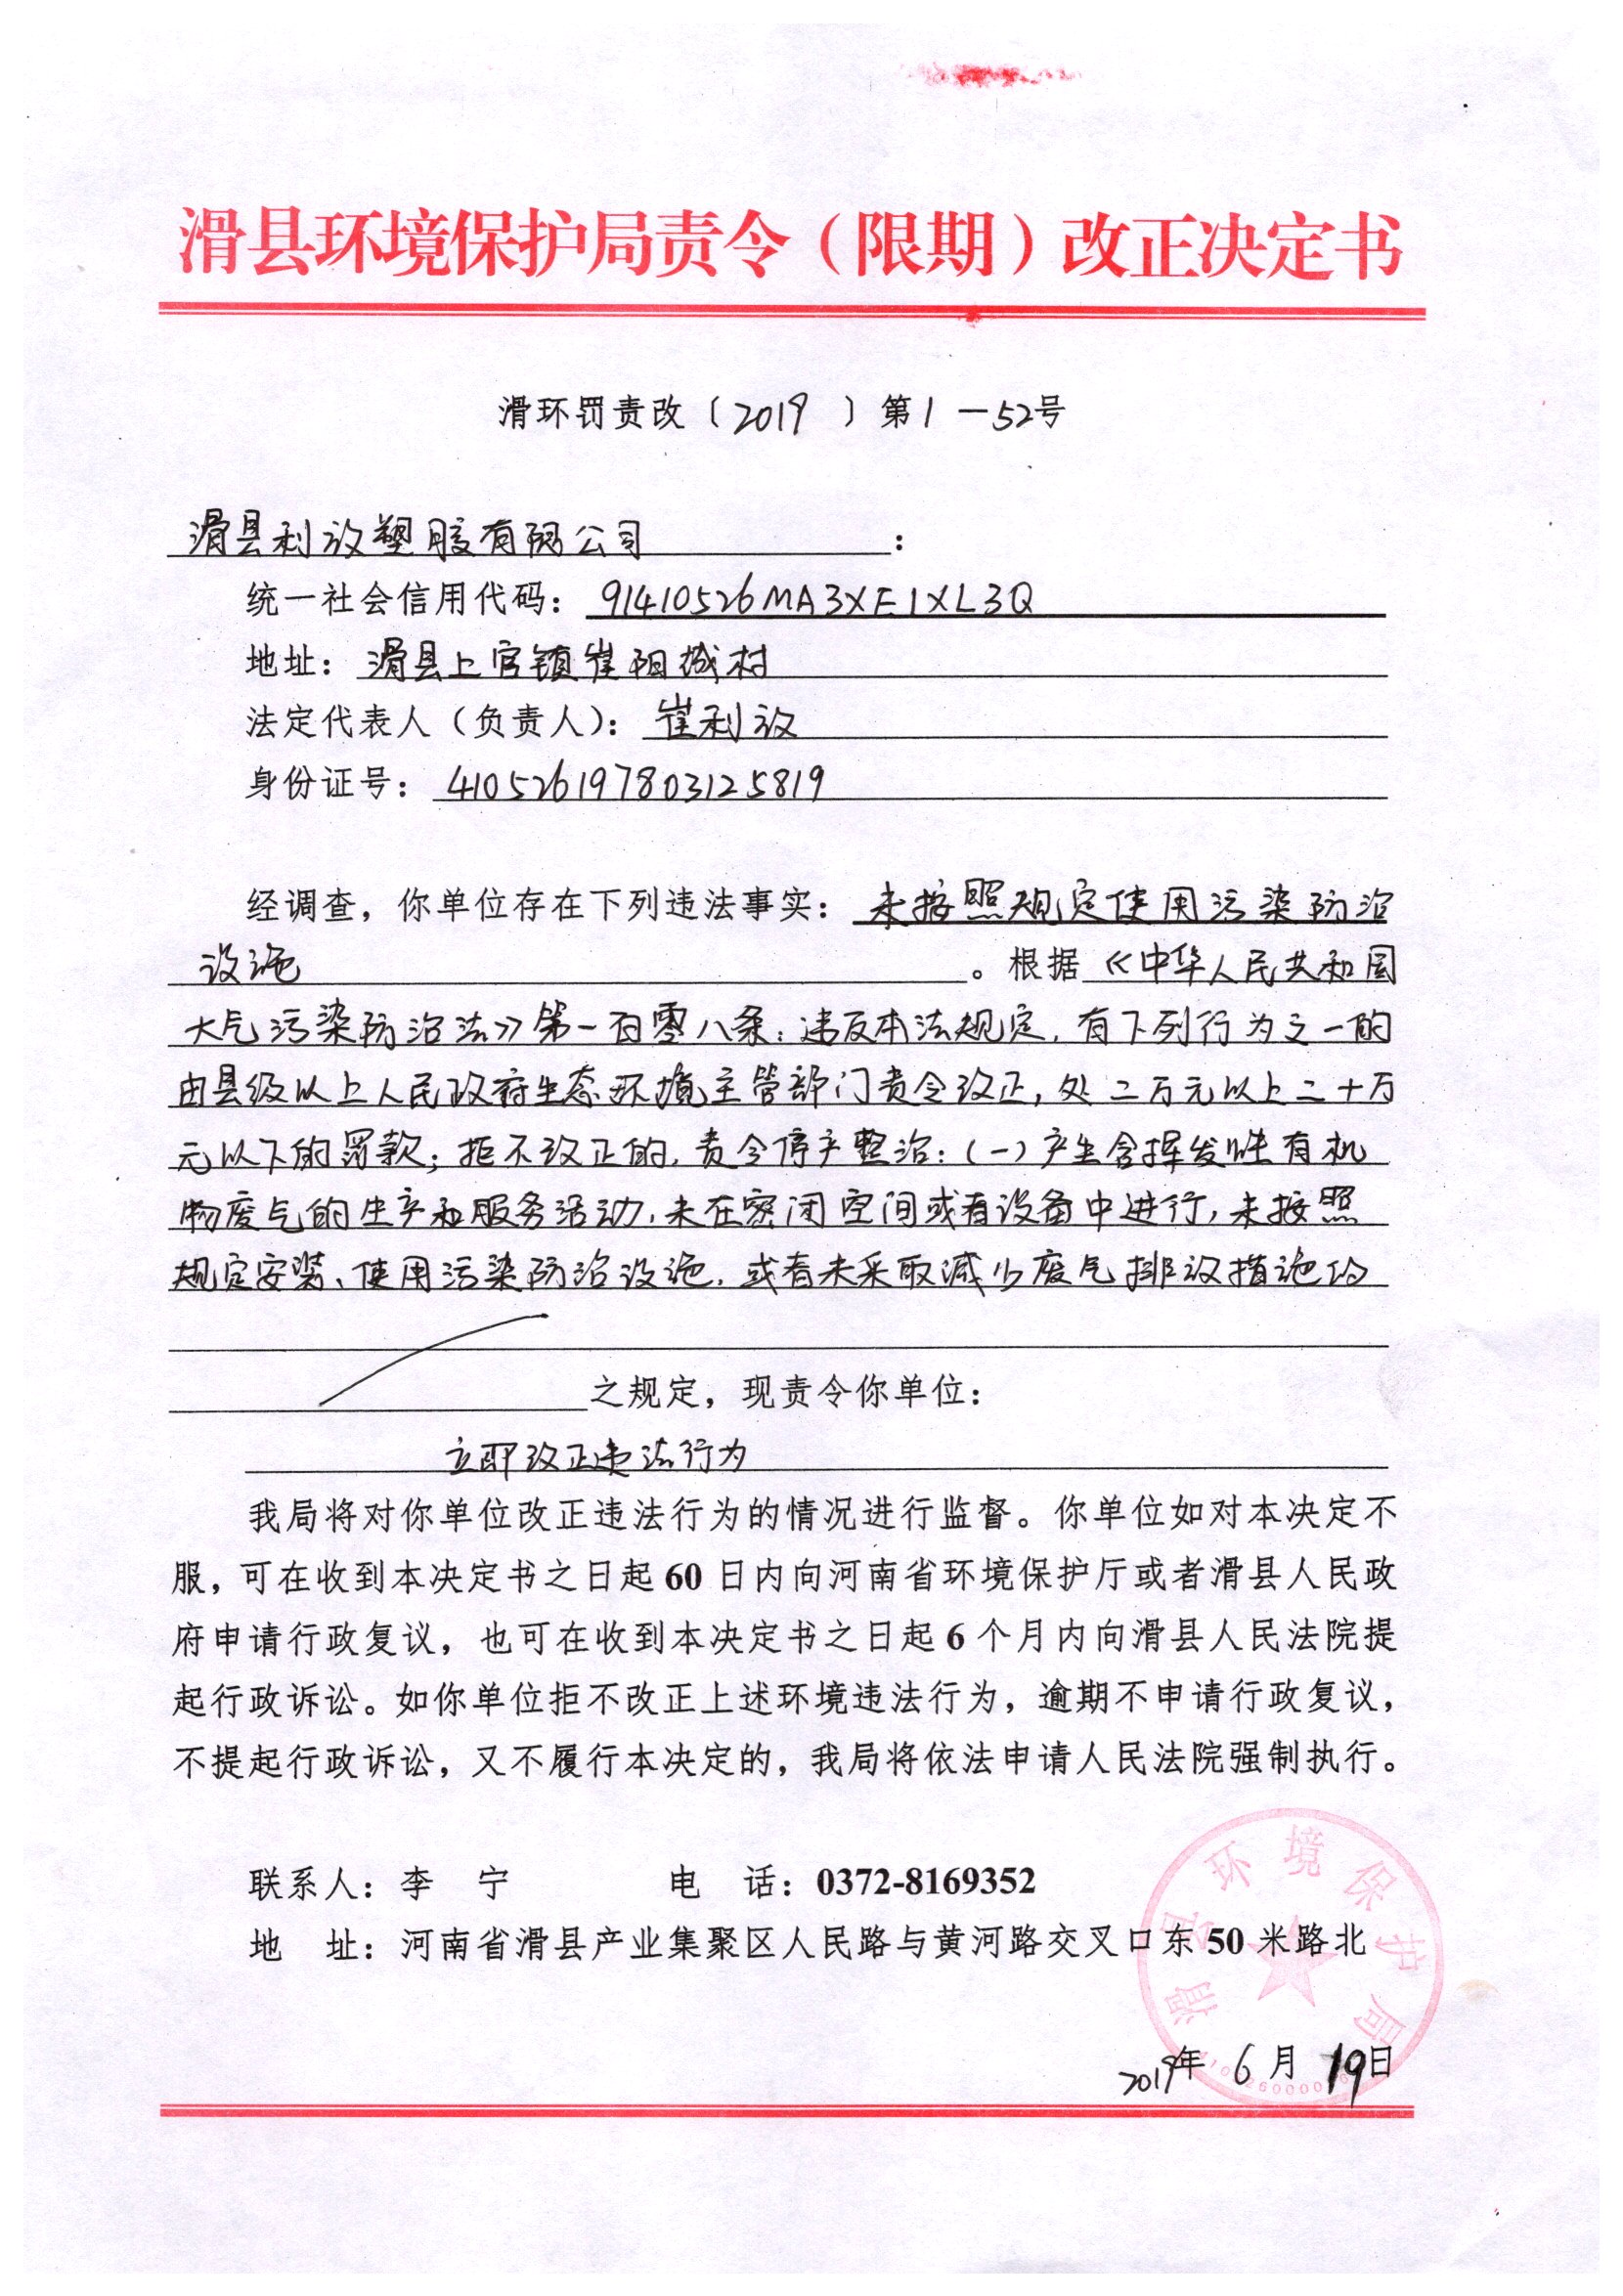 滑县环境保护局责令（限期）改正决定书
滑环罚责改〔2019〕第1－52号
滑县利放塑胶有限公司：
统一社会信用代码：91410526MA3XE1XL3Q
地址：滑县上官镇崔阳城村
法定代表人（负责人）：崔利放
身份证号：410526197803125819
经调查，你单位存在下列违法事实：未按照规定使用污染防治
设施。根据《中华人民共和国
大气污染防治法》第一百零八条：违反本法规定，有下列行为之一的
由县级以上人民政府生态环境主管部门责令改正，处二万元以上二十万
元以下的罚款；拒不改正的，责令停产整治：（一）产生含挥发性有机
物废气的生产和服务活动，未在密闭空间或者设备中进行，未按照
规定安装、使用污染防治设施，或者未采取减少废气排放措施的
之规定，现责令你单位：
立即改正违法行为
我局将对你单位改正违法行为的情况进行监督。你单位如对本决定不
服，可在收到本决定书之日起60日内向河南省环境保护厅或者滑县人民政
府申请行政复议，也可在收到本决定书之日起6个月内向滑县人民法院提
起行政诉讼。如你单位拒不改正上述环境违法行为，逾期不申请行政复议，
不提起行政诉讼，又不履行本决定的，我局将依法申请人民法院强制执行。
联系人：李 宁 电 话：0372-8169352
地 址：河南省滑县产业集聚区人民路与黄河路交叉口东50米路北
滑县环境保护局
2019年6月19日